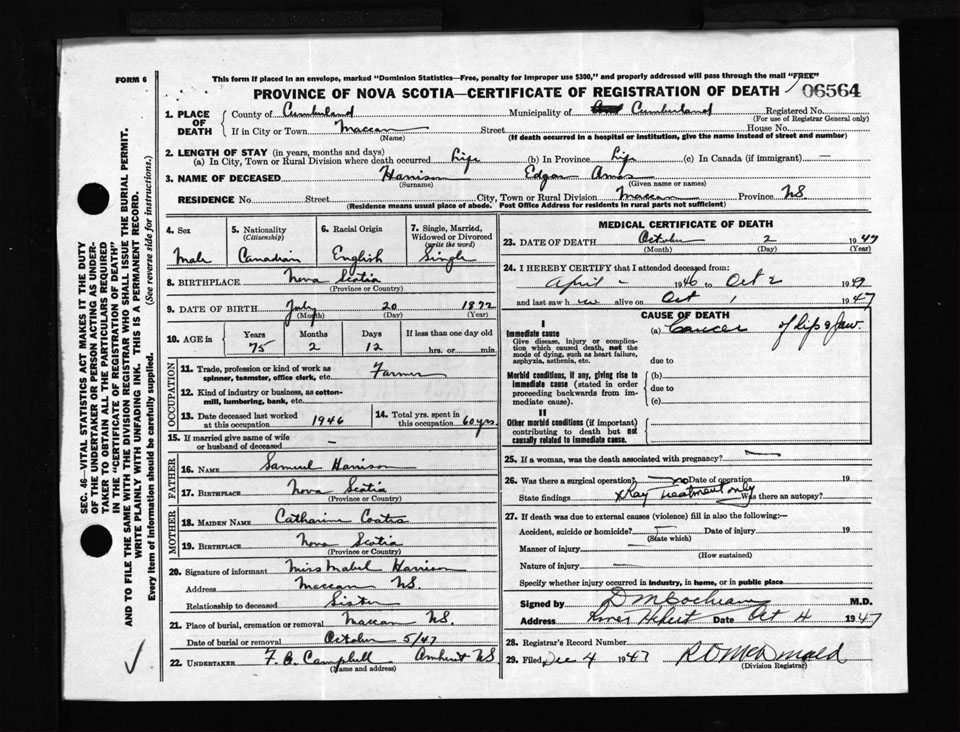 FORM 6
This form if placed in an envelope, marked "Dominion Statistics—Free, penalty for improper use $300," and properly addressed will pass through the mail "FREE"
PROVINCE OF NOVA SCOTIA—CERTIFICATE OF REGISTRATION OF DEATH 06564
1. PLACE OF DEATH County of Cumberland Municipality of Cumberland Registered No.
(For use of Registrar General only)
If in City or Town Maccan Street House No.
(Name) (If death occurred in a hospital or institution, give the name instead of street and number)
2. LENGTH OF STAY (in years, months and days)
(a) In City, Town or Rural Division where death occurred Life (b) In Province Life (c) In Canada (if immigrant) —
3. NAME OF DECEASED Harrison Edgar Amos
(Surname) (Given name or names)
RESIDENCE No. Street City, Town or Rural Division Maccan Province NS
(Residence means usual place of abode. Post Office Address for residents in rural parts not sufficient)
4. Sex 5. Nationality (Citizenship) 6. Racial Origin 7. Single, Married, Widowed or Divorced (write the word)
Male Canadian English Single
8. BIRTHPLACE Nova Scotia
(Province or Country)
9. DATE OF BIRTH July 20 1872
(Month) (Day) (Year)
10. AGE in Years Months Days If less than one day old
75 2 12 hrs. or min.
OCCUPATION
11. Trade, profession or kind of work as spinner, teamster, office clerk, etc. Farmer
12. Kind of industry or business, as cotton-mill, lumbering, bank, etc.
13. Date deceased last worked at this occupation 1946 14. Total yrs. spent in this occupation 60 yrs.
15. If married give name of wife or husband of deceased —
FATHER
16. NAME Samuel Harrison
17. BIRTHPLACE Nova Scotia
(Province or Country)
MOTHER
18. MAIDEN NAME Catharine Coates
19. BIRTHPLACE Nova Scotia
(Province or Country)
20. Signature of informant Miss Mabel Harrison
Address Maccan NS.
Relationship to deceased Sister
21. Place of burial, cremation or removal Maccan NS.
Date of burial or removal October 5/47
22. UNDERTAKER F. B. Campbell Amherst NS
(Name and address)
MEDICAL CERTIFICATE OF DEATH
23. DATE OF DEATH October 2 1947
(Month) (Day) (Year)
24. I HEREBY CERTIFY that I attended deceased from:
April - 1946 to Oct 2 1947
and last saw h alive on Oct 1 1947
CAUSE OF DEATH
I
Immediate cause (a) Cancer of lip & jaw.
Give disease, injury or complication which caused death, not the mode of dying, such as heart failure, asphyxia, asthenia, etc. due to
Morbid conditions, if any, giving rise to immediate cause (stated in order proceeding backwards from immediate cause). (b)
due to
(c)
II
Other morbid conditions (if important) contributing to death but not causally related to immediate cause.
25. If a woman, was the death associated with pregnancy? —
26. Was there a surgical operation? no Date of operation 19
State findings xRay Treatment only Was there an autopsy?
27. If death was due to external causes (violence) fill in also the following:—
Accident, suicide or homicide? — Date of injury 19
(State which)
Manner of injury —
(How sustained)
Nature of injury —
Specify whether injury occurred in industry, in home, or in public place
Signed by D M Cochran M.D.
Address River Hebert Date Oct 4 1947
28. Registrar's Record Number
29. Filed Dec 4 1947 R D McDonald
(Division Registrar)
SEC. 46—VITAL STATISTICS ACT MAKES IT THE DUTY
OF THE UNDERTAKER OR PERSON ACTING AS UNDER-
TAKER TO OBTAIN ALL THE PARTICULARS REQUIRED
IN THE "CERTIFICATE OF REGISTRATION OF DEATH"
AND TO FILE THE SAME WITH THE DIVISION REGISTRAR WHO SHALL ISSUE THE BURIAL PERMIT.
WRITE PLAINLY WITH UNFADING INK. THIS IS A PERMANENT RECORD.
Every item of information should be carefully supplied. (See reverse side for instructions.)